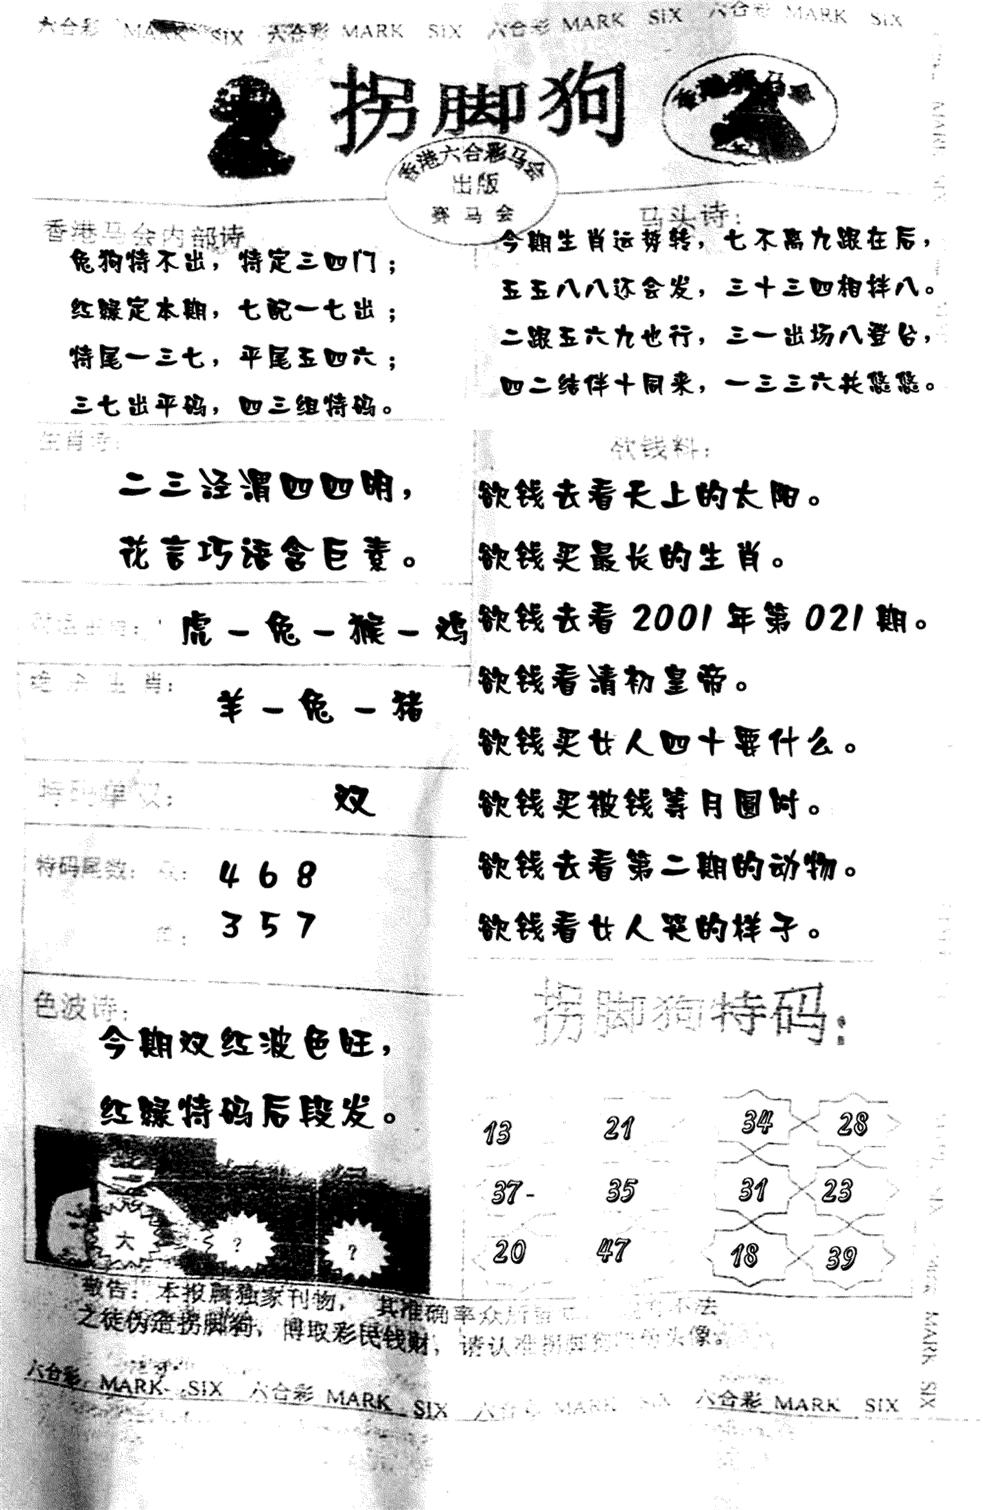 六合彩 MARK SIX 六合彩 MARK SIX 六合彩 MARK SIX 六合彩 MARK SIX
拐脚狗
香港赛马会
香港六合彩马会
出版
赛马会
香港马会内部诗
兔狗特不出，特定三四门；
红绿定本期，七配一七出；
特尾一三七，平尾五四六；
三七出平码，四三组特码。
马头诗：
今期生肖运势转，七不离九跟在后，
五五八八还会发，三十三四相拌八。
二跟五六九也行，三一出场八登台，
四二结伴十同来，一三三六共悠悠。
生肖诗：
二三泾渭四四明，
花言巧语含巨素。
虎－兔－猴－鸡
绝杀生肖：
羊－兔－猪
特码单双：
双
特码尾数：双：
4 6 8
单：
3 5 7
色波诗：
今期双红波色旺，
红绿特码后段发。
大
？
？
欲钱料：
欲钱去看天上的太阳。
欲钱买最长的生肖。
欲钱去看2001年第021期。
欲钱看清初皇帝。
欲钱买女人四十要什么。
欲钱买被钱等月圆时。
欲钱去看第二期的动物。
欲钱看女人哭的样子。
拐脚狗特码：
13 21 34 28
37- 35 31 23
20 47 18 39
敬告：本报属独家刊物，其准确率众所 不法
之徒伪造拐脚狗，博取彩民钱财，请认准拐脚狗 头像。
六合彩 MARK SIX 六合彩 MARK SIX 六合彩 MARK SIX 六合彩 MARK SIX
MARK SIX
MARK SIX